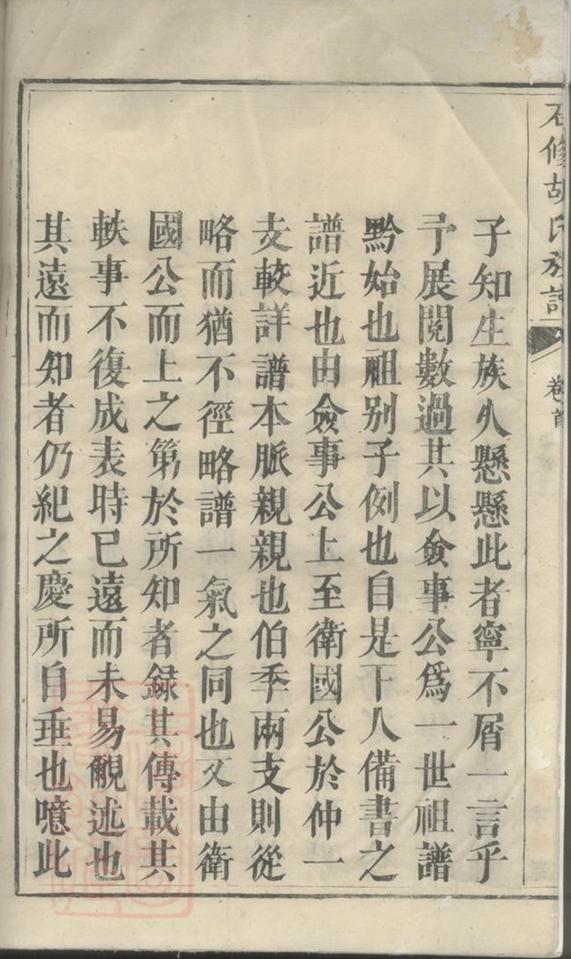 石修胡氏族譜
卷首
子知生族久懸懸此者寧不屑一言乎
予展閱數過其以僉事公爲一世祖譜
黔始也祖别子例也自是下人備書之
譜近也由僉事公上至衛國公於仲一
支較詳譜本脈親親也伯季兩支則從
略而猶不徑略譜一氣之同也又由衛
國公而上之第於所知者録其傳載其
軼事不復成表時已遠而未易覼述也
其遠而知者仍紀之慶所自垂也噫此